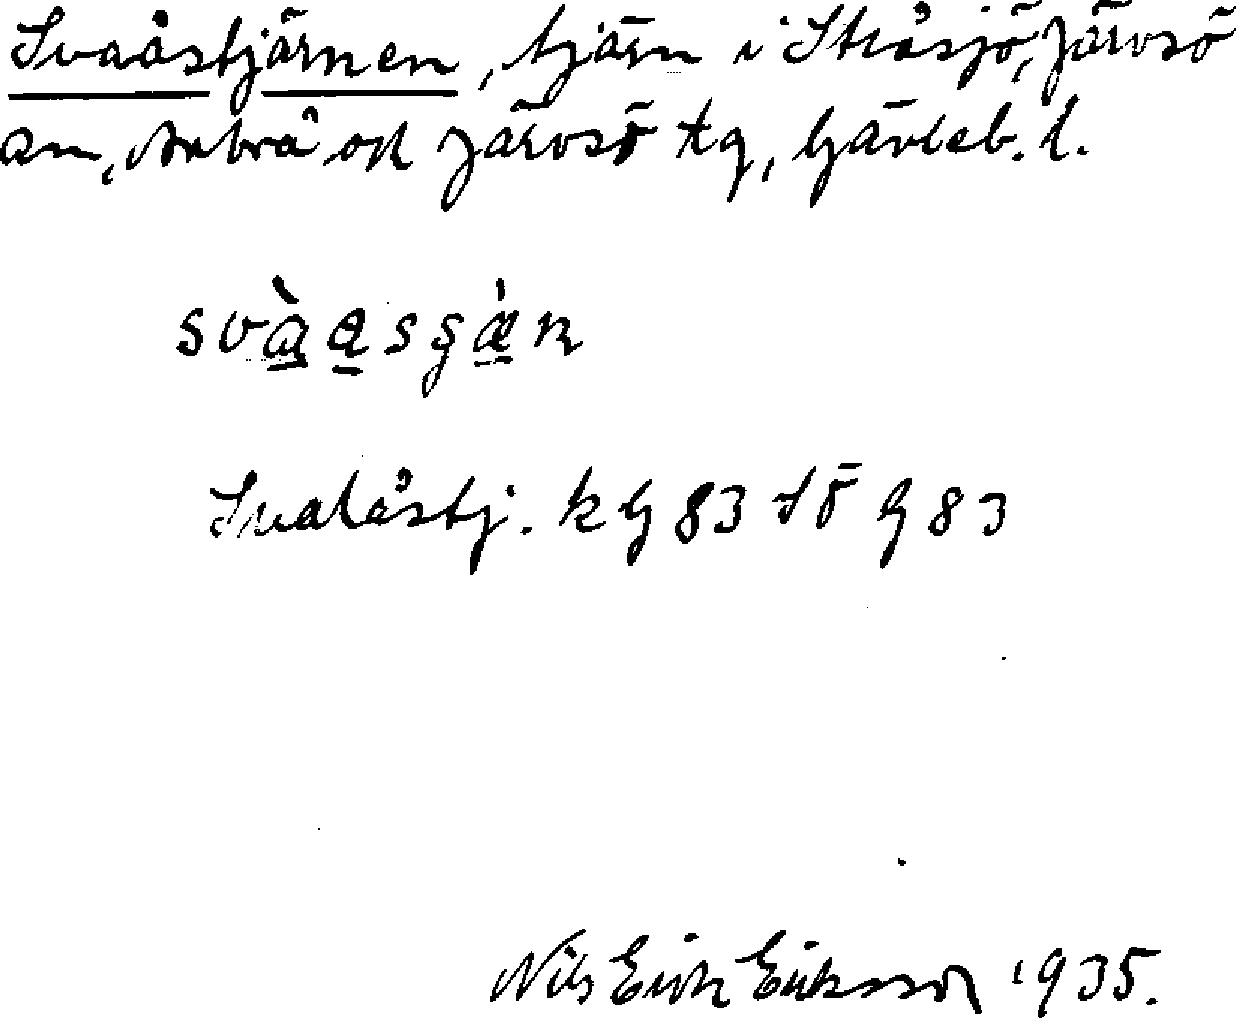 Svaåstjärnen, tjärn i Stråsjö, Järvsö
sn, Arbrå och Järvsö tg, Gävleb. l.
svàasgæ̀n
Svalåstj. k G 83 G 83
Nils Erik Eriksson 1935.